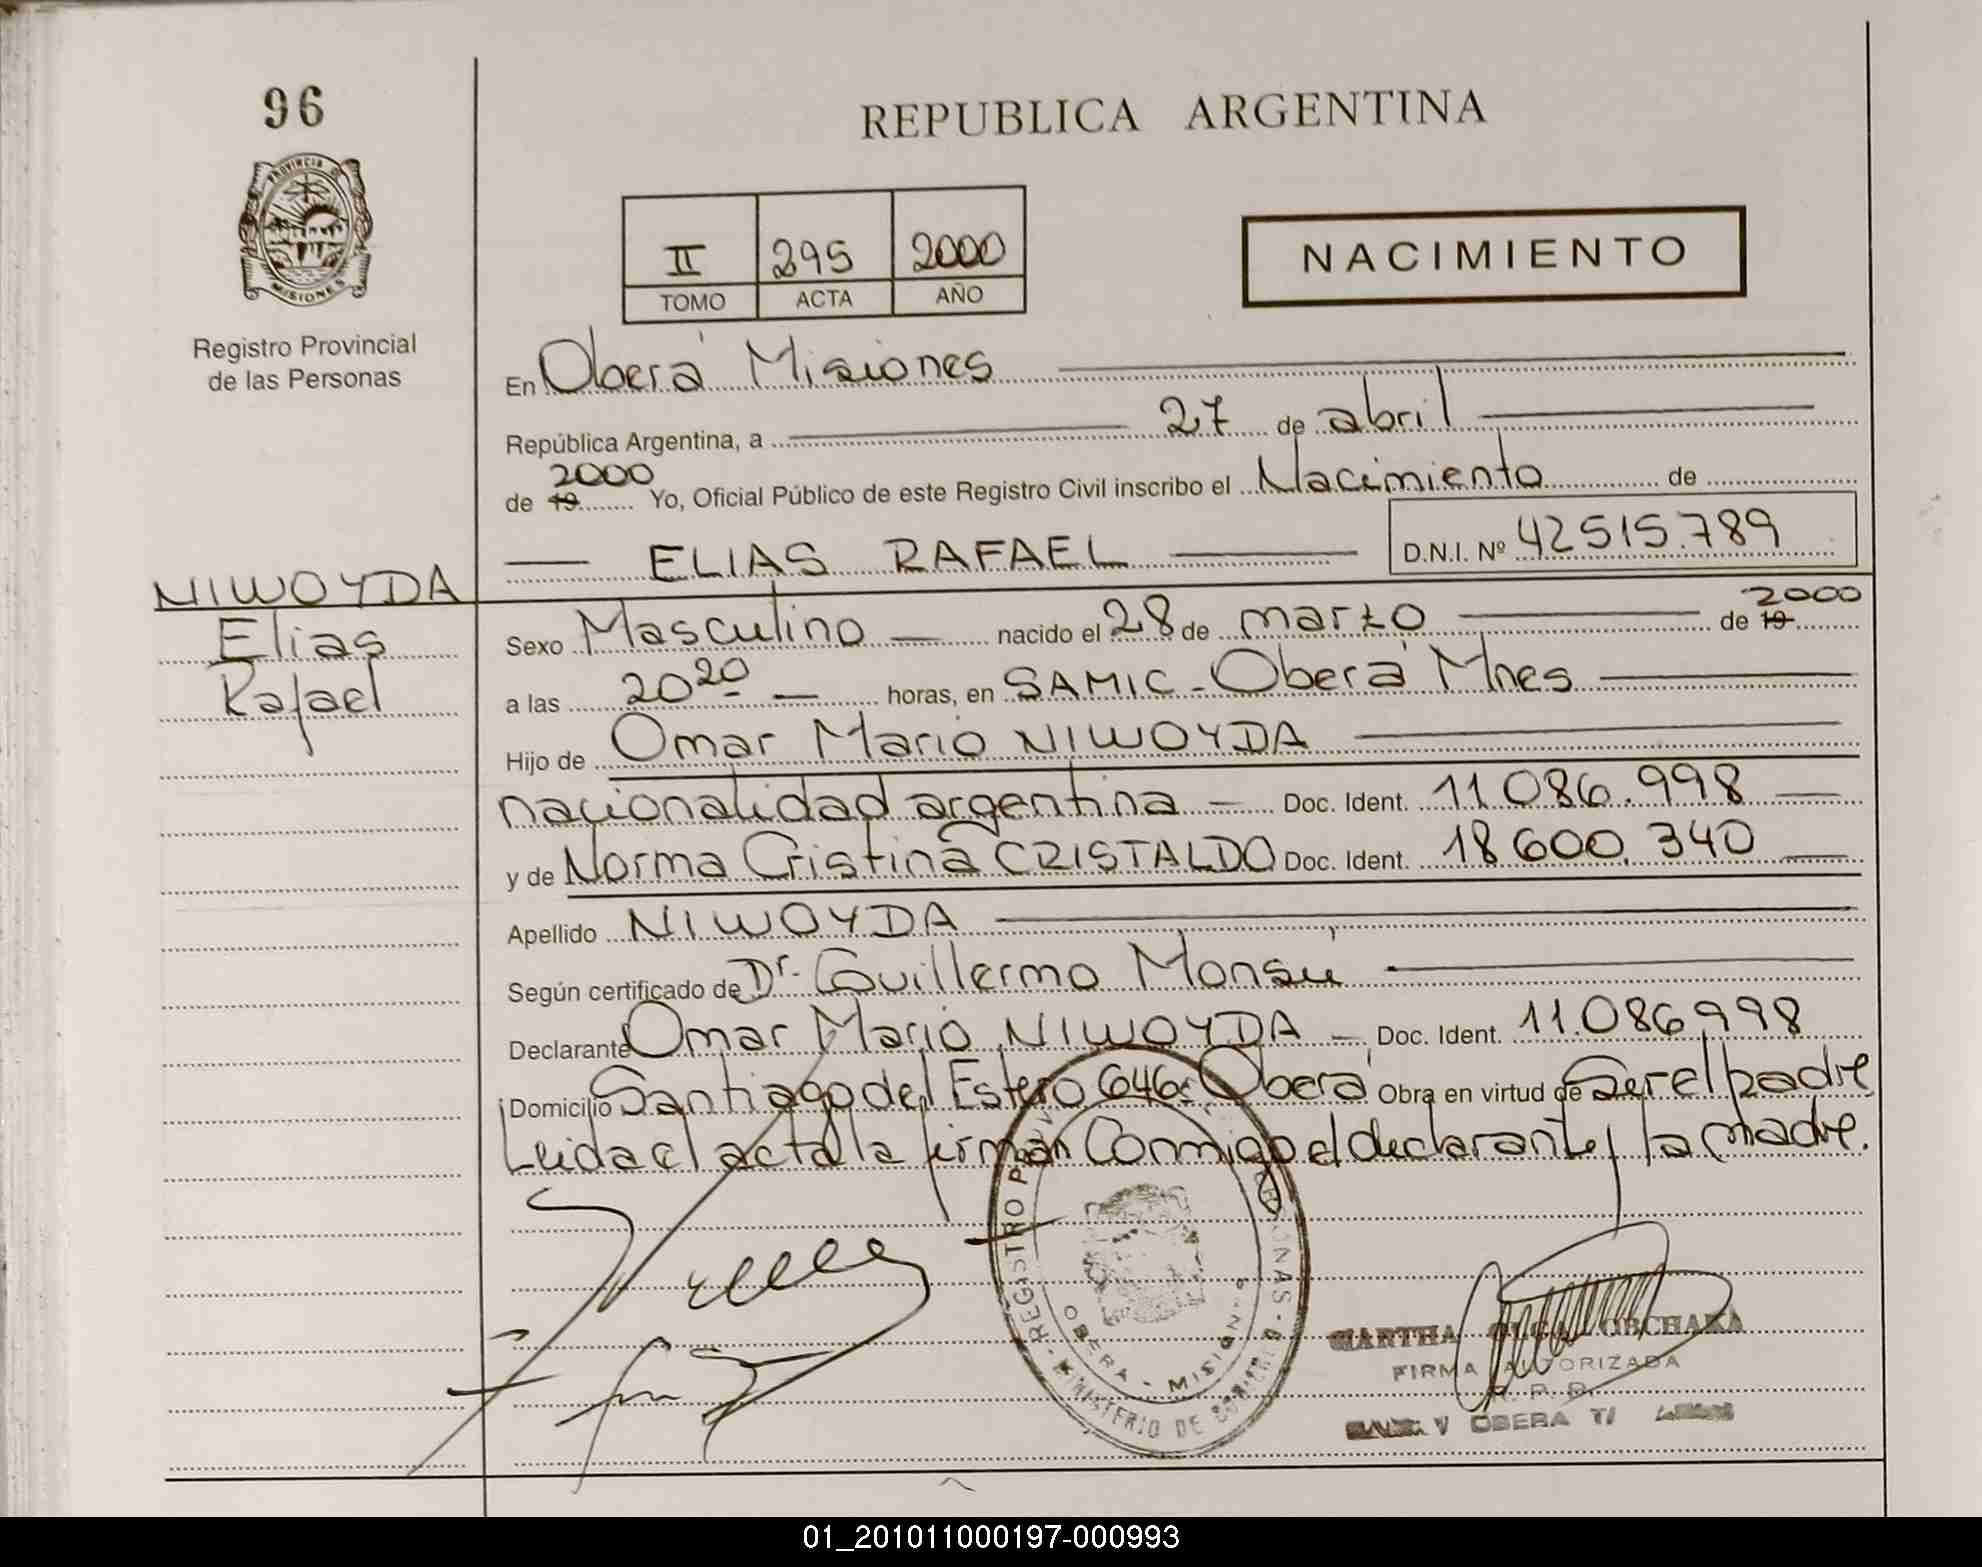 96
REPUBLICA ARGENTINA
PROVINCIA DE
MISIONES
Registro Provincial
de las Personas
II 295 2000
TOMO ACTA AÑO
NACIMIENTO
En Oberá Misiones
República Argentina, a 27 de abril
2000
de 19 Yo, Oficial Público de este Registro Civil inscribo el Nacimiento de
ELIAS RAFAEL D.N.I. Nº 42515.789
NIWOYDA
Elias
Rafael
2000
Sexo Masculino nacido el 28 de marzo de 19
a las 20 20 horas, en SAMIC - Oberá Mnes
Hijo de Omar Mario NIWOYDA
nacionalidad argentina Doc. Ident. 11.086.998
y de Norma Cristina CRISTALDO Doc. Ident. 18.600.340
Apellido NIWOYDA
Según certificado de Dr. Guillermo Monsú
Declarante Omar Mario NIWOYDA Doc. Ident. 11.086.998
Domicilio Santiago del Estero 646 Oberá Obra en virtud de Ser el padre
Leida el acta la firman Conmigo el declarante y la madre.
REGISTRO
OBERA - MISIONES
MINISTERIO DE
MARTHA OLGA
FIRMA AUTORIZADA
OBERA
01_201011000197-000993